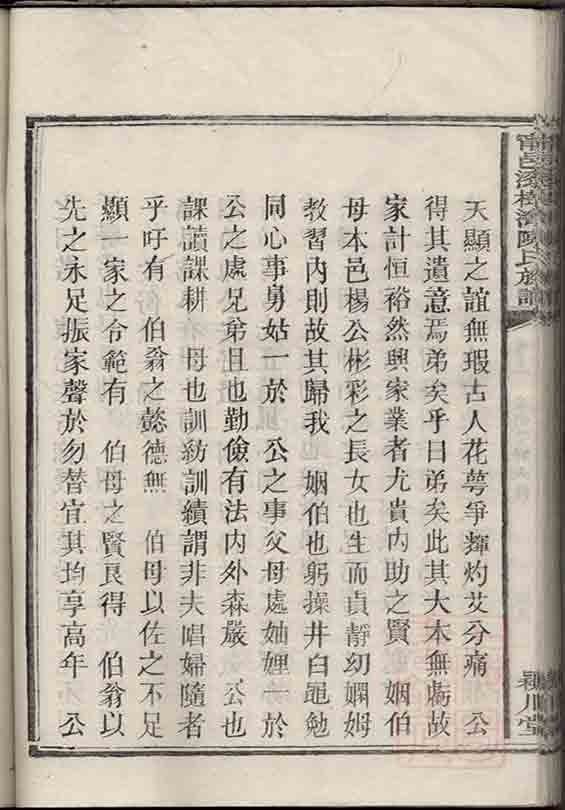 甯邑漆樹𣹢陳氏族譜
潁川堂
天顯之誼無瑕古人花萼爭輝灼艾分痛　公
得其遺意焉弟矣乎曰弟矣此其大本無虧故
家計恒裕然興家業者尤貴內助之賢　姻伯
母本邑楊公彬彩之長女也生而貞靜幼嫻姆
教習內則故其歸我　姻伯也躬操井臼黽勉
同心事舅姑一於　公之事父母處妯娌一於
公之處兄弟且也勤儉有法內外森嚴　公也
課讀課耕　母也訓紡訓績謂非夫唱婦隨者
乎吁有　伯翁之懿德無　伯母以佐之不足
顯一家之令範有　伯母之賢良得　伯翁以
先之永足振家聲於勿替宜其均享高年　公